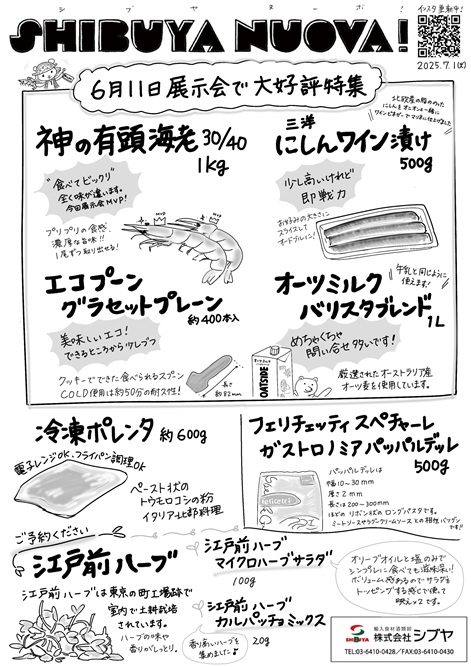 シブヤヌーボ!
SHIBUYA NUOVA!
インスタ更新中!
2025.7.1(火)
6月11日展示会で大好評特集
神の有頭海老 30/40
1kg
"食べてビックリ"
全く味が違います。
今回展示会MVP!
プリプリの食感
濃厚な旨味!!
1尾ずつ取り出せる!
北欧産の脂ののった
にしんをオニオンと一緒に
ワインビネガーでマリネに仕上げました
三洋
にしんワイン漬け
500g
少し高いけれど
即戦力
お好みの大きさに
スライスして
オードブルに!
エコプーン
グラセットプレーン
約400本入
美味しいエコ!
できるところから少しづつ
クッキーでできた食べられるスプーン
COLD使用は約50分の耐久性!
長さ
約82mm
オーツミルク
バリスタブレンド
1L
牛乳と同じように
使えます!
めちゃくちゃ
問い合せ多いです!
OATSIDE
厳選されたオーストラリア産
オーツ麦を使用しています。
冷凍ポレンタ 約600g
電子レンジOK、フライパン調理OK
ペースト状の
トウモロコシの粉
イタリア北部料理
フェリチェッティ スペチャーレ
ガストロノミア パッパルデッレ
500g
パッパルデッレは
幅10〜30mm
厚さ2mm
長さは200〜300mm
ほどのリボン状のロングパスタです。
ミートソースやラグー、クリームソースとの相性バッグンです!!
ご予約ください
江戸前ハーブ
江戸前ハーブは東京の町工場跡で
室内で土耕栽培
されています。
ハーブの味や
香りがしっとり。
江戸前ハーブ
マイクロハーブサラダ
100g
江戸前ハーブ
カルパッチョミックス
20g
香り高いハーブを
集めました♪
オリーブオイルと塩のみで
シンプルに食べても滋味深い!
ボリューム感あるのでサラダを
トッピングする感じで使して
映えッ2です。
SHIBUYA
輸入食材酒類卸
株式会社シブヤ
TEL:03-6410-0428/FAX:03-6410-0430